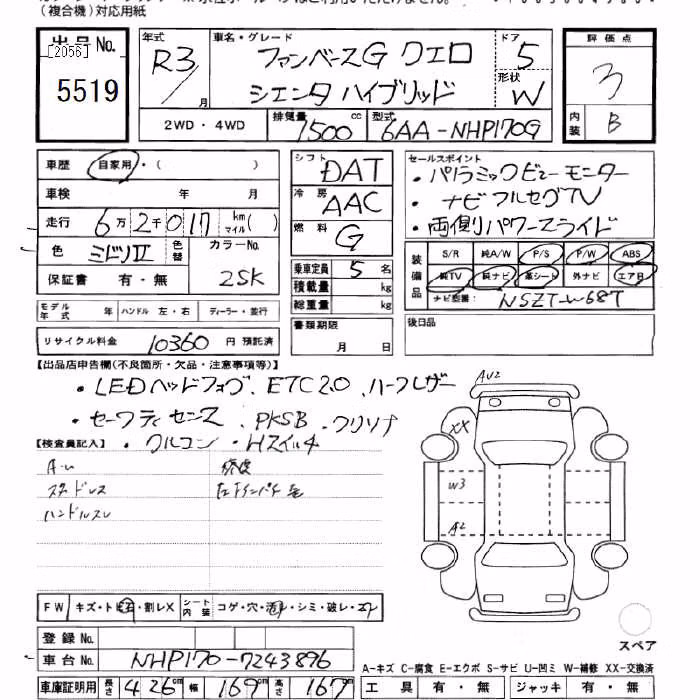 (複合機)対応用紙
出品No.
[2056]
5519
年式
R3
月
車名・グレード
ファンベースG クエロ
シエンタ ハイブリッド
ドア
5
形状
W
評価点
3
内装
B
2WD・4WD
排気量
1500 cc
型式
6AA-NHP170G
車歴
自家用・( )
車検 年 月
走行 6万2千017 km マイル( )
色 ミドリII 色替
カラーNo.
25K
保証書 有・無
シフト DAT
冷房 AAC
燃料 G
乗車定員 5名
積載量 kg
総重量 kg
セールスポイント
・パノラミックビューモニター
・ナビフルセグTV
・両側パワースライド
装備品
S/R 純A/W P/S P/W ABS
純TV 純ナビ 革シート 外ナビ エアB
ナビ型番: NSZT-W68T
モデル年式 年 ハンドル 左・右 ディーラー・並行
リサイクル料金 10360 円 預託済
書類期限
月 日
後日品
【出品店申告欄(不良箇所・欠品・注意事項等)】
・LEDヘッドフォグ、ETC2.0、ハーフレザー
・セーフティセンス、PKSB、クリソナ
・クルコン・Hスイルチ
【検査員記入】
ハンドルスレ
AU2
XX
W3
A2
スペア
FW キズ・トビ石・割レX
シート内装 コゲ・穴・汚レ・シミ・破レ・スレ
登録No.
車台No. NHP170-7243896
車庫証明用 長さ 426cm 幅 169cm 高さ 167cm
A-キズ C-腐食 E-エクボ S-サビ U-凹ミ W-補修 XX-交換済
工具 有・無 ジャッキ 有・無